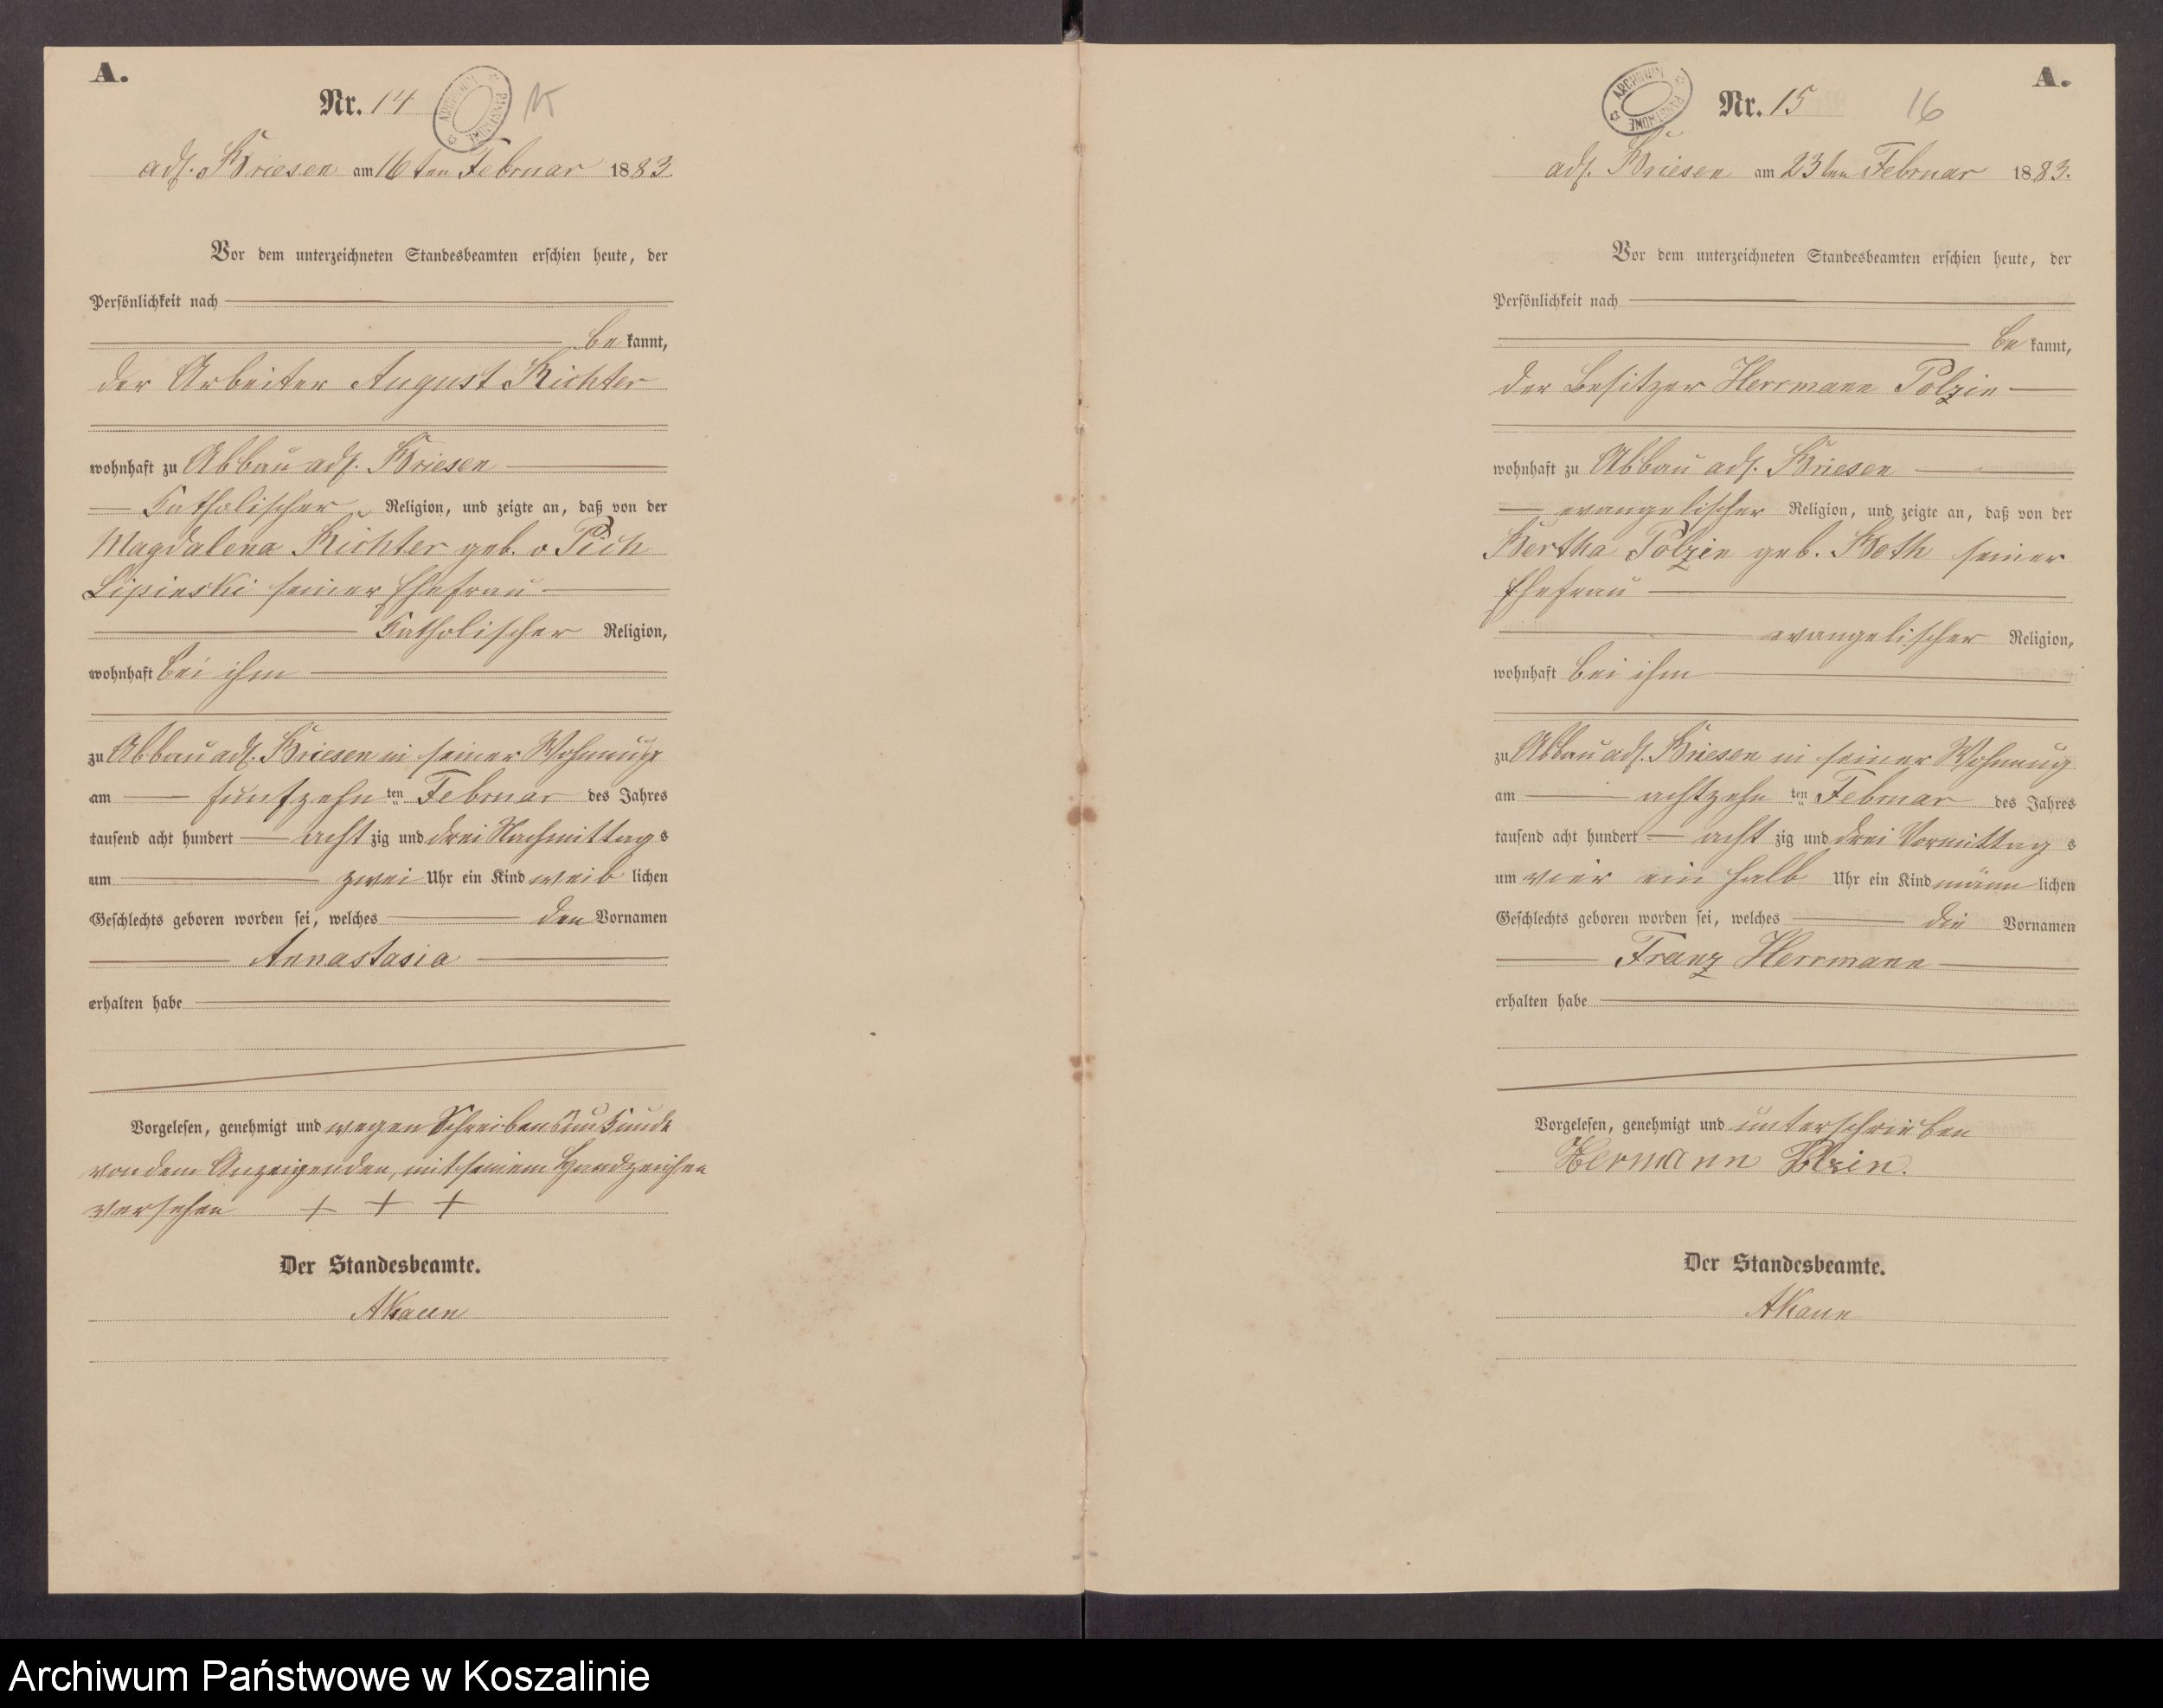 A.
Nr. 14
ARCHIWUM PAŃSTWOWE
15
adl. Briesen am 16ten Februar 1883.
Vor dem unterzeichneten Standesbeamten erschien heute, der
Persönlichkeit nach
bekannt,
der Arbeiter August Richter
wohnhaft zu Abbau adl. Briesen
katholischer Religion, und zeigte an, daß von der
Magdalena Richter geb. v Pich
Lipinski seiner Ehefrau
katholischer Religion,
wohnhaft bei ihm
zu Abbau adl. Briesen in seiner Wohnung
am fünfzehn ten Februar des Jahres
tausend acht hundert acht zig und drei Nachmittags
um zwei Uhr ein Kind weiblichen
Geschlechts geboren worden sei, welches den Vornamen
Annastasia
erhalten habe
Vorgelesen, genehmigt und wegen Schreibensunkunde
von dem Anzeigenden, mit seinem Handzeichen
versehen + + +
Der Standesbeamte.
A.
ARCHIWUM PAŃSTWOWE
Nr. 15
16
adl. Briesen am 23ten Februar 1883.
Vor dem unterzeichneten Standesbeamten erschien heute, der
Persönlichkeit nach
bekannt,
der Besitzer Herrmann Polzin
wohnhaft zu Abbau adl. Briesen
evangelischer Religion, und zeigte an, daß von der
Bertha Polzin geb. Both seiner
Ehefrau
evangelischer Religion,
wohnhaft bei ihm
zu Abbau adl. Briesen in seiner Wohnung
am achtzehn ten Februar des Jahres
tausend acht hundert acht zig und drei Vormittags
um vier ein halb Uhr ein Kind männlichen
Geschlechts geboren worden sei, welches die Vornamen
Franz Herrmann
erhalten habe
Vorgelesen, genehmigt und unterschrieben
Hermann Polzin.
Der Standesbeamte.
Archiwum Państwowe w Koszalinie